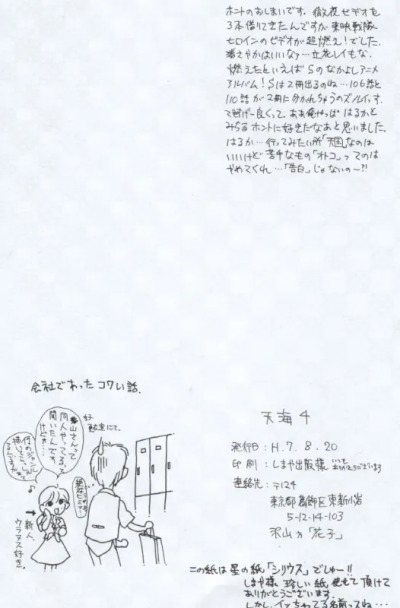 ホントのおしまいです。徹夜でビデオを
3本借りてきたんですが東映戦隊
ヒロインのビデオが超燃え!でした。
さやかはいいなァ…立花レイもな。
燃えたといえばSのなかよしアニメ
アルバム!Sは2冊出るのね…106話と
110話が2冊に分かれちゃうのズルイッす。
良くって。ああ俺やっぱはるかと
みちるホントに好きだなあと思いました。
はるか…行ってみたい所「天国」なのは
いいけど苦手なもの「オトコ」ってのは
やめてくれ…「告白」じゃないの〜!!
会社であったコワい話。
山さんって
同人やってるって
聞いたんです
けどぉ…
新人。
ウラヌス好き。
天海 4
発行日:H.7.8.20
印刷:しまや出版様 いつもありがとうございます
連絡先:〒124
東京都葛飾区東新小岩
5-12-14-103
「花子」
この紙は星の紙「シリウス」でしゅー!!
しまや様 珍しい紙 見せて頂けて
ありがとうございます。
しかし、イッちゃってる名前ってね…